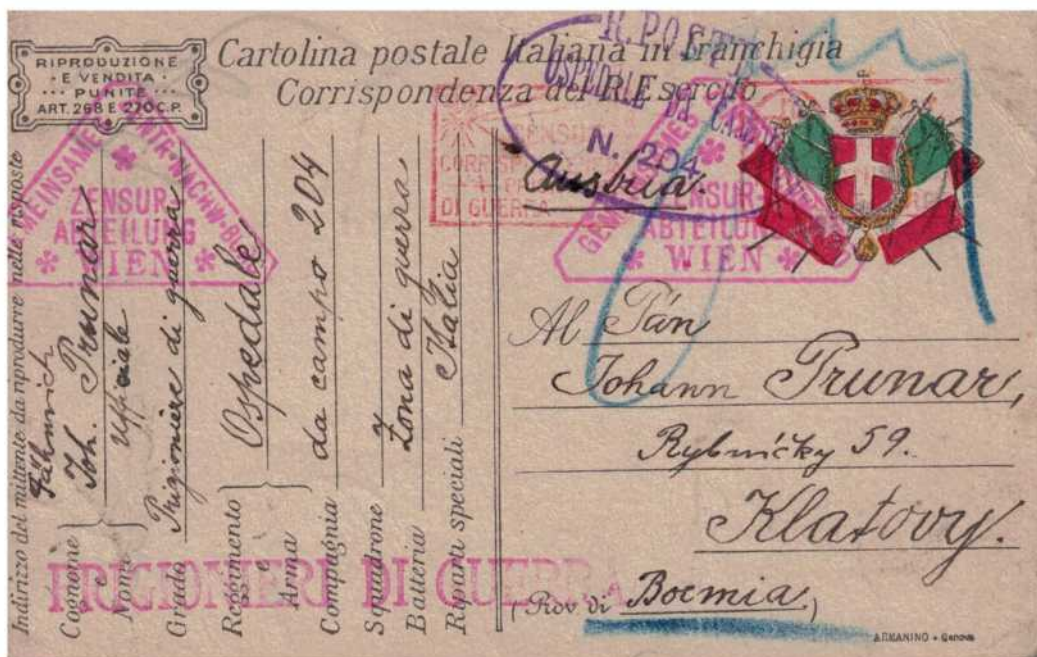 RIPRODUZIONE
E VENDITA
PUNITE
ART. 268 E 270 C.P.
Cartolina postale Italiana in franchigia
Corrispondenza del R. Esercito
R. POSTA
OSPEDALE DA CAMPO
N. 204
CENSURA
DI GUERRA
Austria.
GEMEINSAMES ZENTR-NACHW-BU
ZENSUR
ABTEILUNG
WIEN
GEMEINSAMES
ZENSUR
ABTEILUNG
WIEN
Indirizzo del mittente da riprodurre nelle risposte
Fähnrich
Cognome e Nome Joh. Prunar
Ufficiale
Grado Prigioniere di guerra
Reggimento e Arma Ospedale
Compagnia da campo 204
Squadrone
Batteria Zona di guerra
Riparti speciali Italia
PRIGIONIERI DI GUERRA
Al Pán
Johann Prunar,
Rybníčky 59.
Klatovy.
(Prov di Boemia)
ARMANINO - Genova